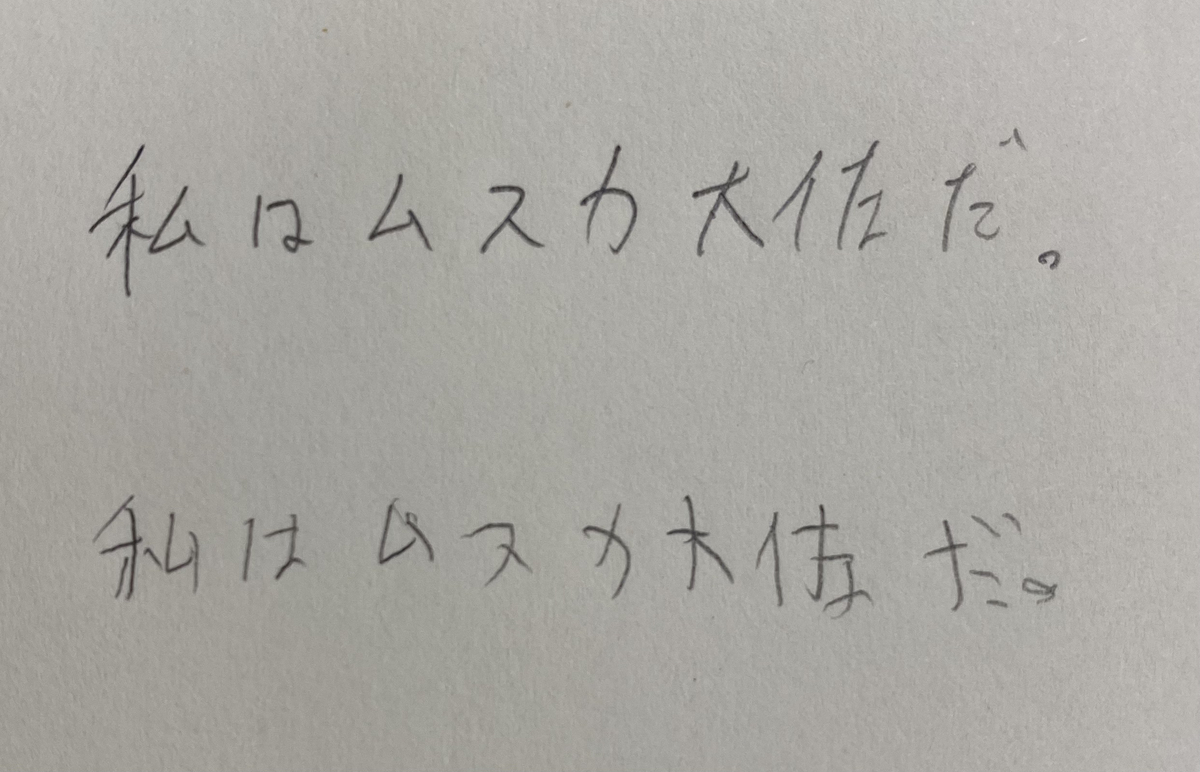 私はムスカ大佐だ。
私はムスカ大佐だ。